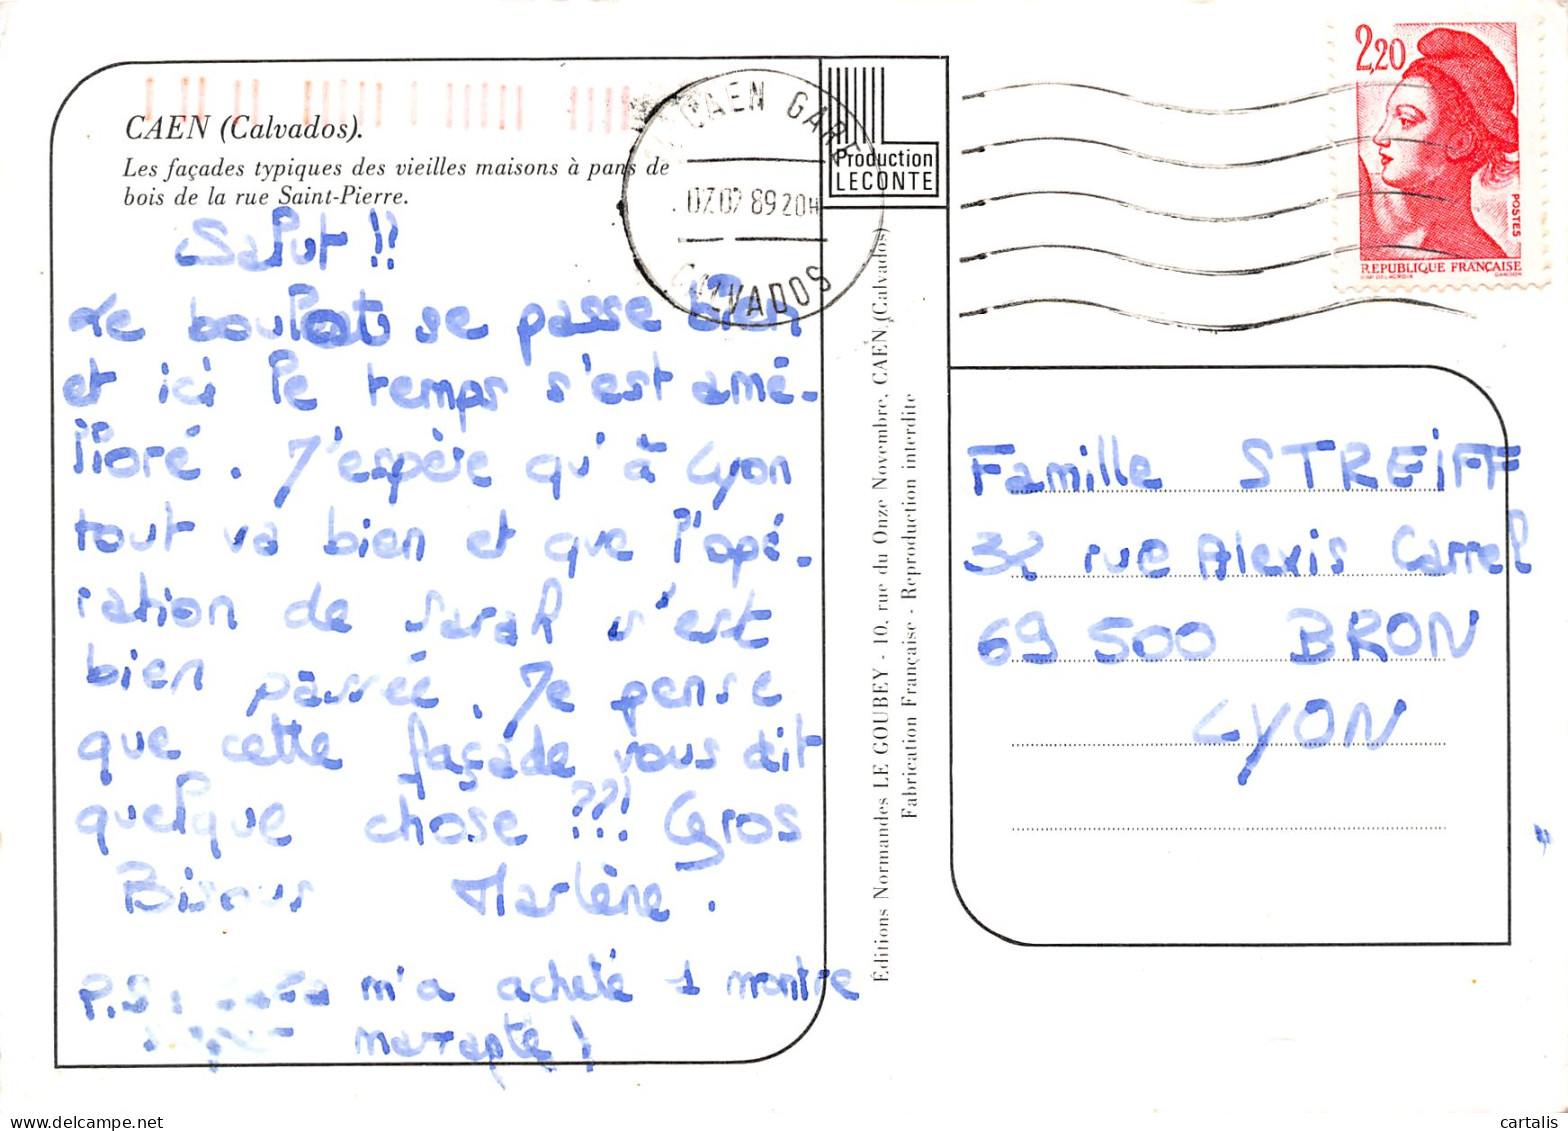 CAEN (Calvados).
Les façades typiques des vieilles maisons à pans de
bois de la rue Saint-Pierre.
Salut !!
Le boulot se passe bien
et ici le temps s'est amé-
lioré. J'espère qu'à Lyon
tout va bien et que l'opé-
ration de Sarah s'est
bien passée. Je pense
que cette façade vous dit
quelque chose ??! Gros
Bisous Marlène.
P.S : m'a acheté 1 montre
marrante !
CAEN GARE
07 07 89 20H
CALVADOS
Production
LECONTE
Éditions Normandes LE GOUBEY - 10, rue du Onze Novembre, CAEN (Calvados)
Fabrication Française - Reproduction interdite
2,20
POSTES
REPUBLIQUE FRANÇAISE
Famille STREIFF
32 rue Alexis Carrel
69 500 BRON
LYON
cartalis
delcampe.net